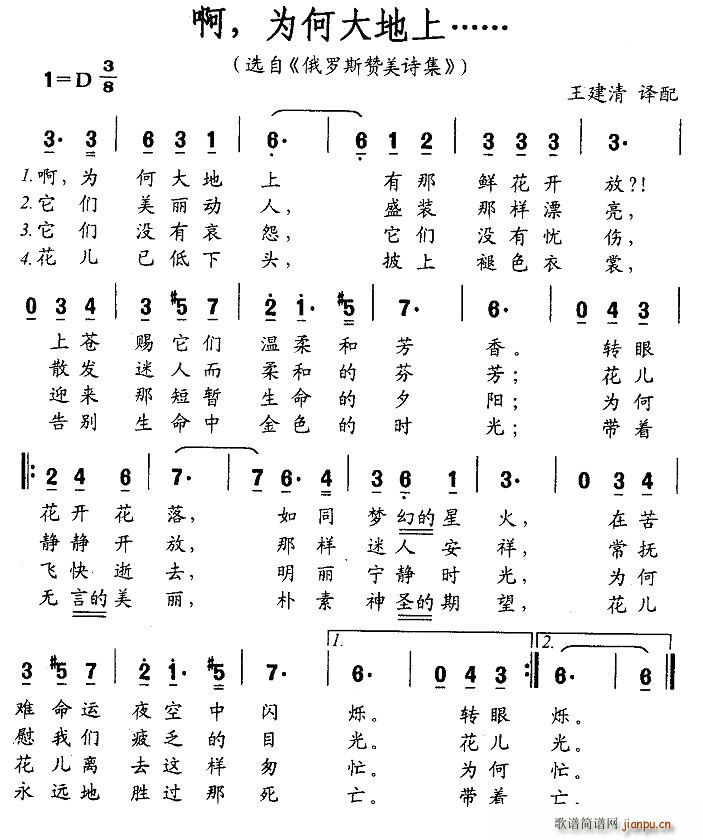 啊，为何大地上……
（选自《俄罗斯赞美诗集》）
1=D 3/8
王建清 译配
3· 3 | 6 3 1 | 6· | 6 1 2 | 3 3 3 | 3· |
1.啊，为 何大地 上 有那 鲜花开 放?!
2.它们 美丽动 人， 盛装 那样漂 亮，
3.它们 没有哀 怨， 它们 没有忧 伤，
4.花儿 已低下 头， 披上 褪色衣 裳，
0 3 4 | 3 #5 7 | 2 1· #5 | 7· | 6· | 0 4 3
上苍 赐它们 温柔和 芳 香。 转眼
散发 迷人而 柔和的 芬 芳； 花儿
迎来 那短暂 生命的 夕 阳； 为何
告别 生命中 金色的 时 光； 带着
‖: 2 4 6 | 7· | 7 6· 4 | 3 6 1 | 3· | 0 3 4 |
花开花 落， 如同 梦幻的星 火， 在苦
静静开 放， 那样 迷人安 祥， 常抚
飞快逝 去， 明丽 宁静时 光， 为何
无言的美 丽， 朴素 神圣的期 望， 花儿
1. 2.
3 #5 7 | 2 1· #5 | 7· | 6· | 0 4 3 :‖ 6· | 6 ‖
难命运 夜空中 闪 烁。 转眼 烁。
慰我们 疲乏的 目 光。 花儿 光。
花儿离 去这样 匆 忙。 为何 忙。
永远地 胜过那 死 亡。 带着 亡。
歌谱简谱网
jianpu.cn